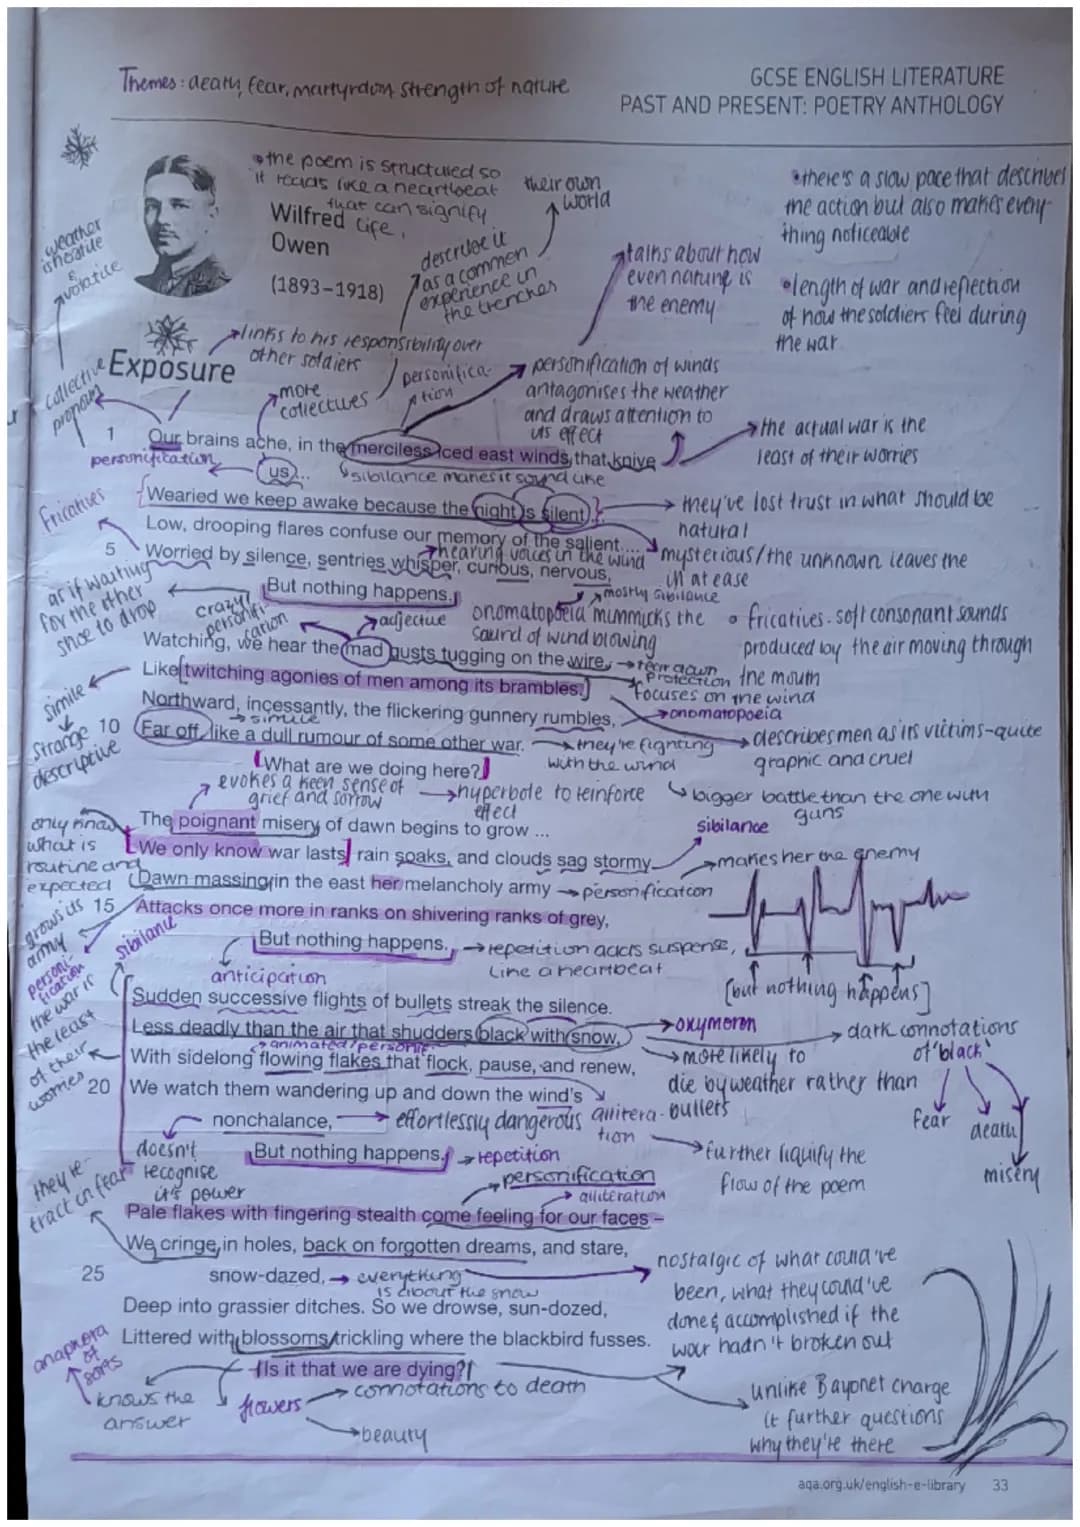 Themes: death, fear, martyrdom, strength of nature
GCSE ENGLISH LITERATURE
PAST AND PRESENT: POETRY ANTHOLOGY
the poem is structured so
it reads like a heartbeat
that can signify
life.
their own
world
there's a slow pace that describes
the action but also makes every-
thing noticeable
Wilfred
Owen
(1893–1918)
describe it
as a common
experience in
the trenches
talks about how
even nature is
the enemy
length of war and reflection
of how the soldiers feel during
the war
weather
is hostile
&
volatile
links to his responsibility over
other soldiers
Exposure
collective
pronoun
more
collectives
personifica-
tion
personification of winds
antagonises the weather
and draws attention to
its effect
the actual war is the
least of their worries
1 Our brains ache, in the merciless iced east winds that knive
personification
us ...
sibilance makes it sound like
Fricatives
Wearied we keep awake because the night is silent ...
they've lost trust in what should be
natural
Low, drooping flares confuse our memory of the salient ...
hearing voices in the wind
mysterious/the unknown leaves the
in at ease
5 Worried by silence, sentries whisper, curious, nervous,
as if waiting
for the other
shoe to drop
But nothing happens.
mostly sibilance
crazy/
personifi-
cation
adjective
onomatopoeia mimmicks the
sound of wind blowing
fricatives - soft consonant sounds
produced by the air moving through
the mouth
Watching, we hear the mad gusts tugging on the wire,
tear down
protection
focuses on the wind
simile
Like twitching agonies of men among its brambles.
Northward, incessantly, the flickering gunnery rumbles,
onomatopoeia
simile
strange
descriptive
10 Far off, like a dull rumour of some other war.
they're fighting
with the wind
describes men as its victims-quite
graphic and cruel
What are we doing here?
evokes a keen sense of
grief and sorrow
hyperbole to reinforce
effect
bigger battle than the one with
guns
The poignant misery of dawn begins to grow ...
sibilance
only know
what is
routine and
expected
We only know war lasts, rain soaks, and clouds sag stormy.
makes her the enemy
Dawn massing in the east her melancholy army
personification
15 Attacks once more in ranks on shivering ranks of grey,
grows its
army
personi-
fication
sibilance
But nothing happens.
repetition adds suspense,
like a heartbeat
anticipation
[but nothing happens]
the war is
the least
of their
worries
Sudden successive flights of bullets streak the silence.
Less deadly than the air that shudders black with snow,
oxymoron
dark connotations
of 'black'
animated/personif
more likely to
die by weather rather than
bullets
With sidelong flowing flakes that flock, pause, and renew,
20 We watch them wandering up and down the wind's
nonchalance,
effortlessly dangerous
allitera-
tion
fear
death
misery
doesn't
recognise
it's power
But nothing happens.
repetition
further liquify the
flow of the poem
they re-
tract in fear
personification
alliteration
Pale flakes with fingering stealth come feeling for our faces –
We cringe in holes, back on forgotten dreams, and stare,
25 snow-dazed,
everything
is about the snow
nostalgic of what could've
been, what they could've
done & accomplished if the
war hadn't broken out
Deep into grassier ditches. So we drowse, sun-dozed,
Littered with blossoms trickling where the blackbird fusses.
anaphora
of
sorts
Is it that we are dying?
knows the
answer
flowers
connotations to death
beauty
unlike Bayonet Charge
it further questions
why they're there
aqa.org.uk/english-e-library 33